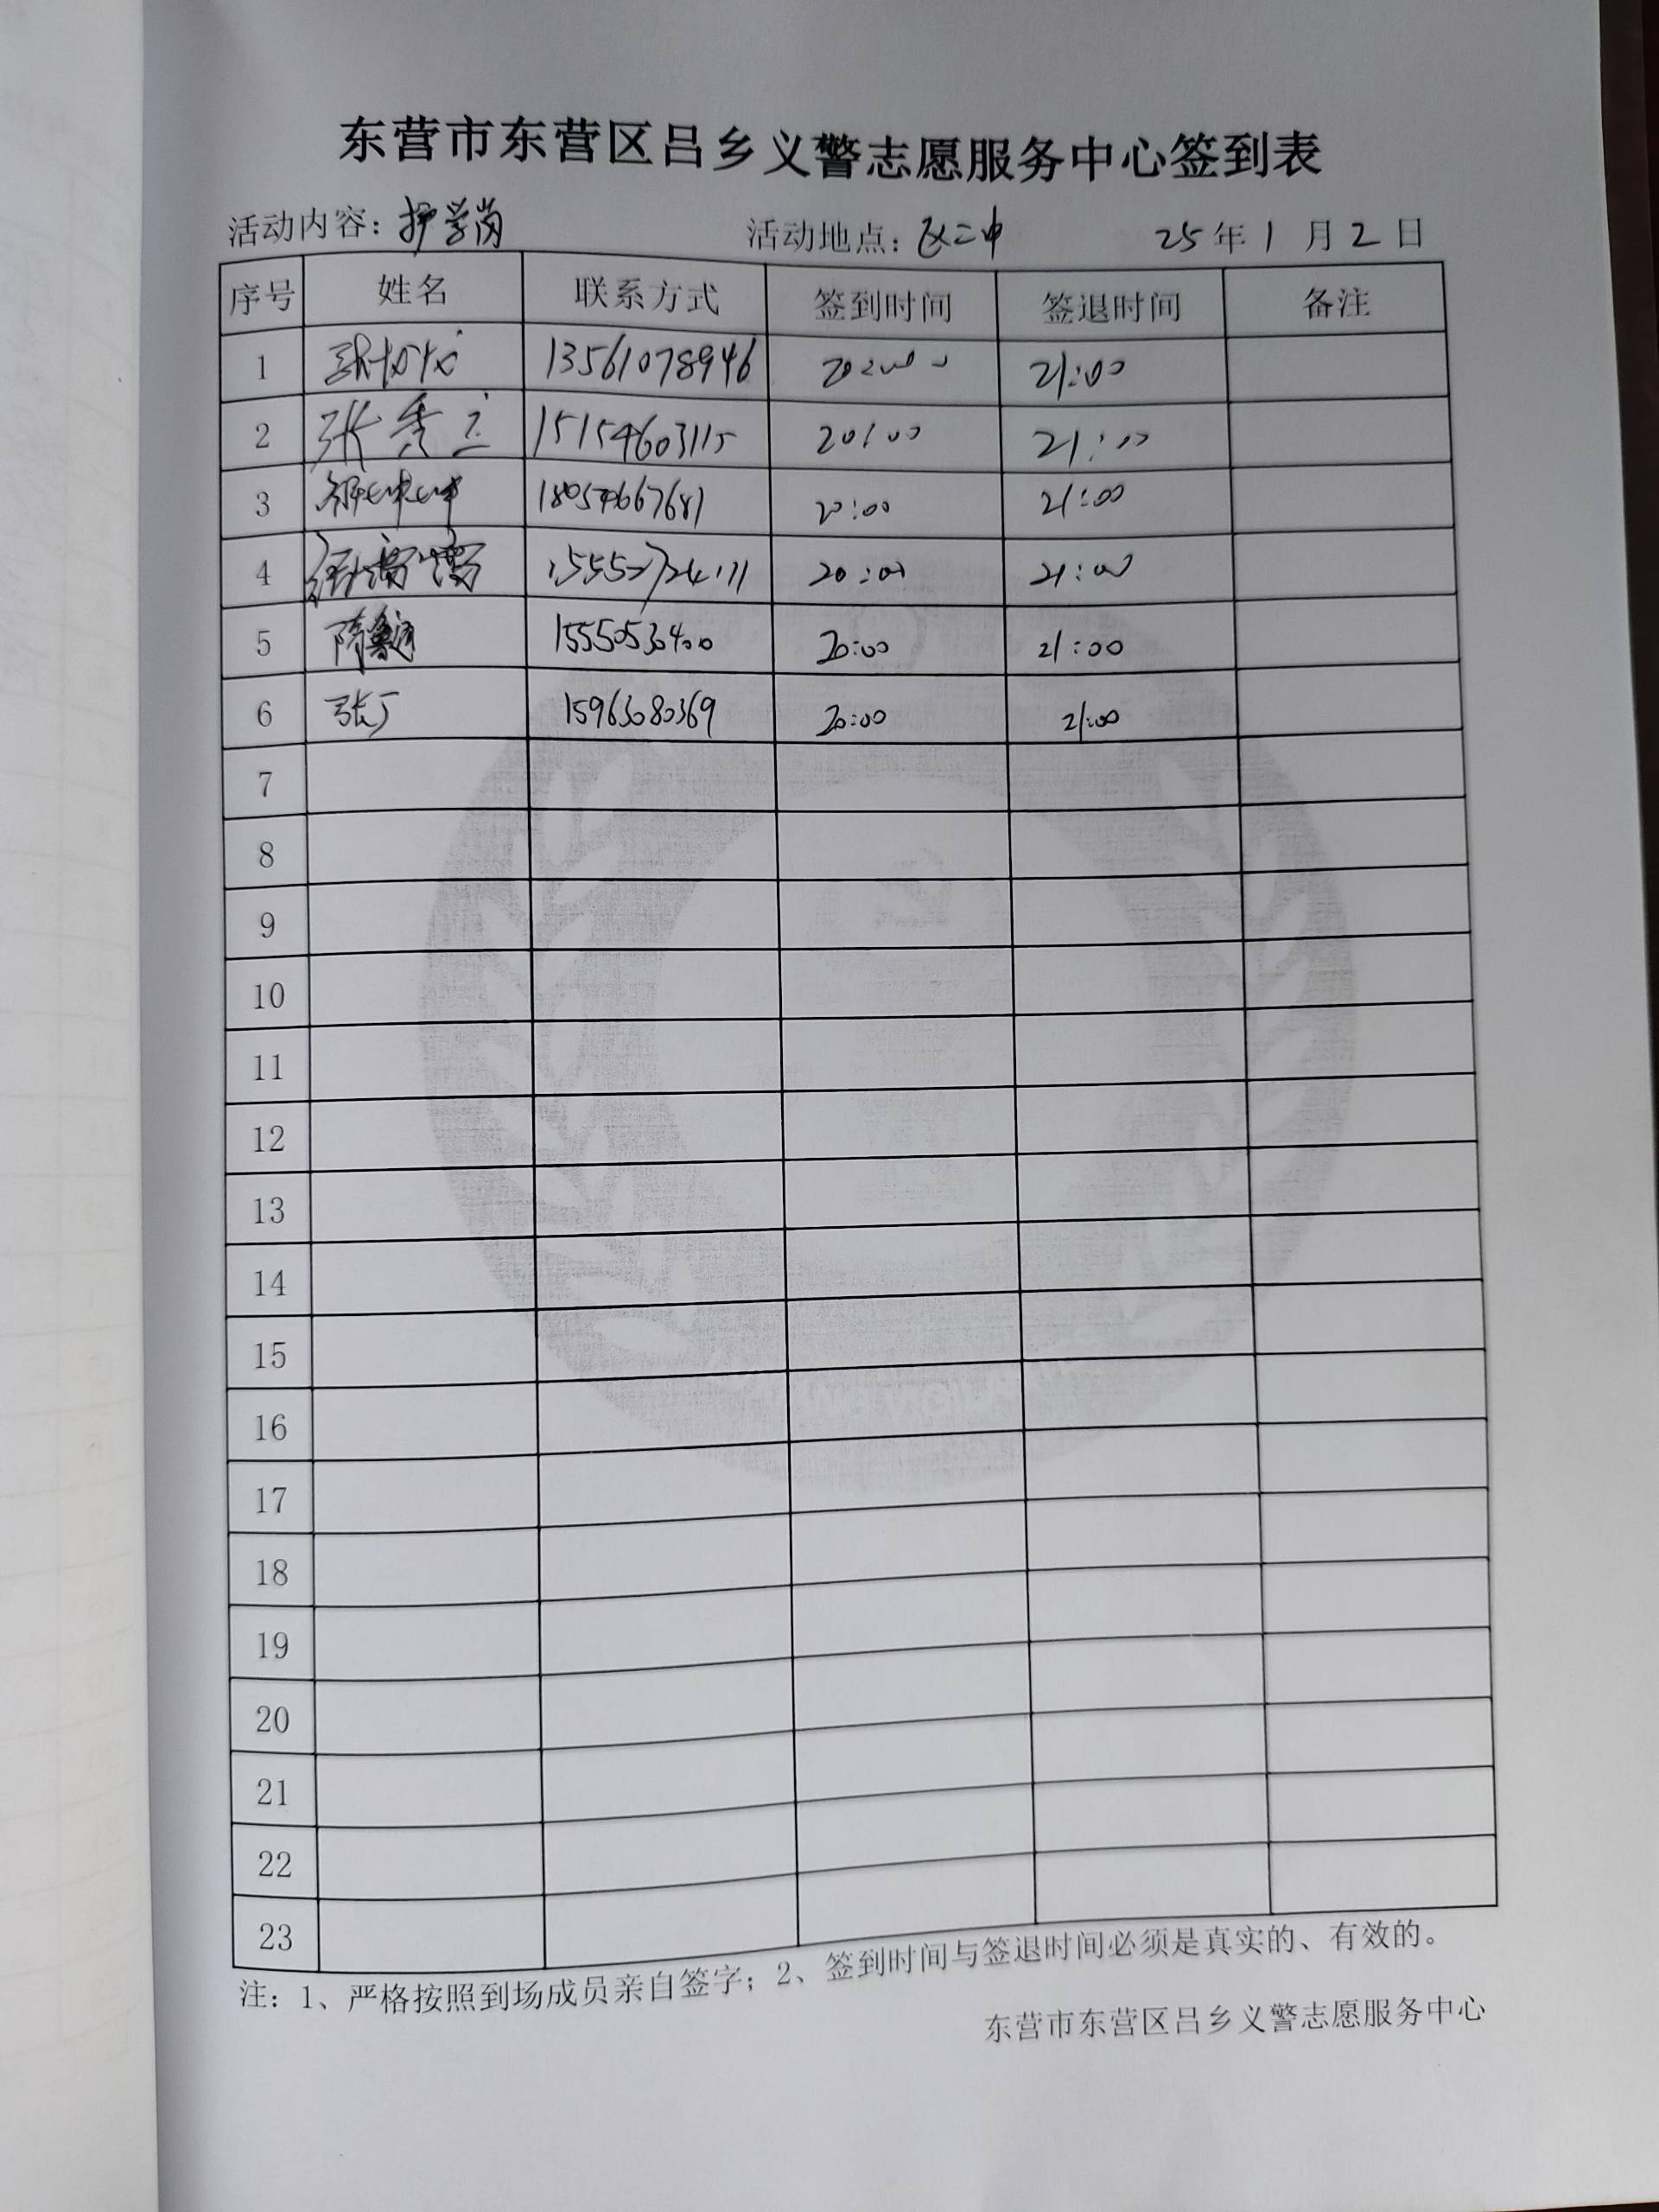 东营市东营区吕乡义警志愿服务中心签到表
活动内容：护学岗 活动地点：区二中 25年1月2日
序号 姓名 联系方式 签到时间 签退时间 备注
1 13561078946 20:00 21:00
2 张秀兰 15154603115 20:00 21:00
3 18054667681 20:00 21:00
4 20:00 21:00
5 隋 15550530400 20:00 21:00
6 张广 15963080369 20:00 21:00
7
8
9
10
11
12
13
14
15
16
17
18
19
20
21
22
23
注：1、严格按照到场成员亲自签字；2、签到时间与签退时间必须是真实的、有效的。
东营市东营区吕乡义警志愿服务中心